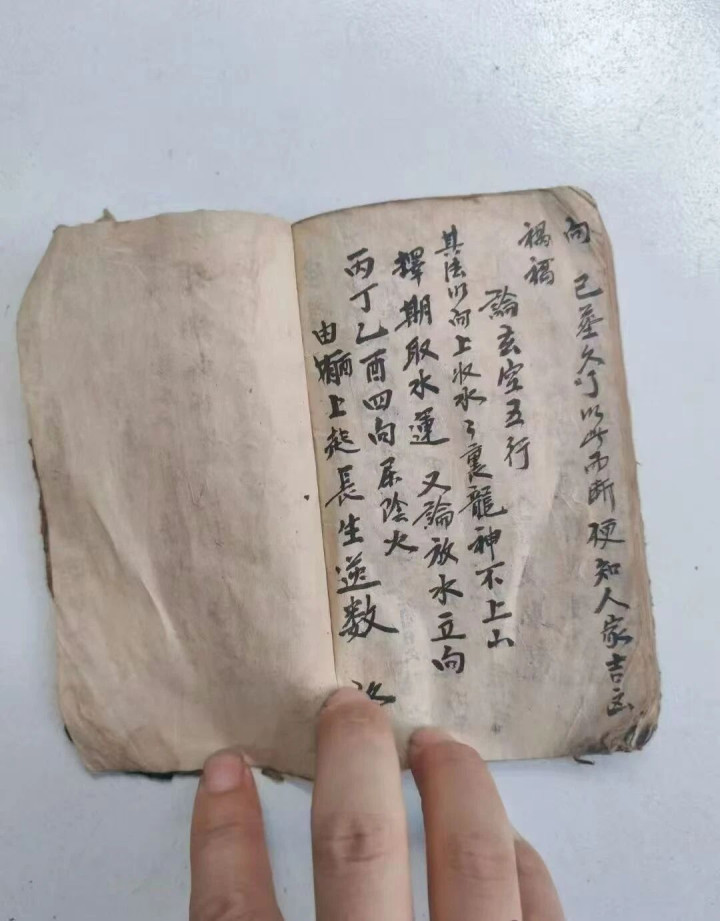 向 已葬久吖以此而断便知人家吉凶
禍福
論玄空五行
其法以向上收水々裏龍神不上山
擇期取水運 又論放水立向
丙丁乙酉四向屬陰火
由 上起長生逆数